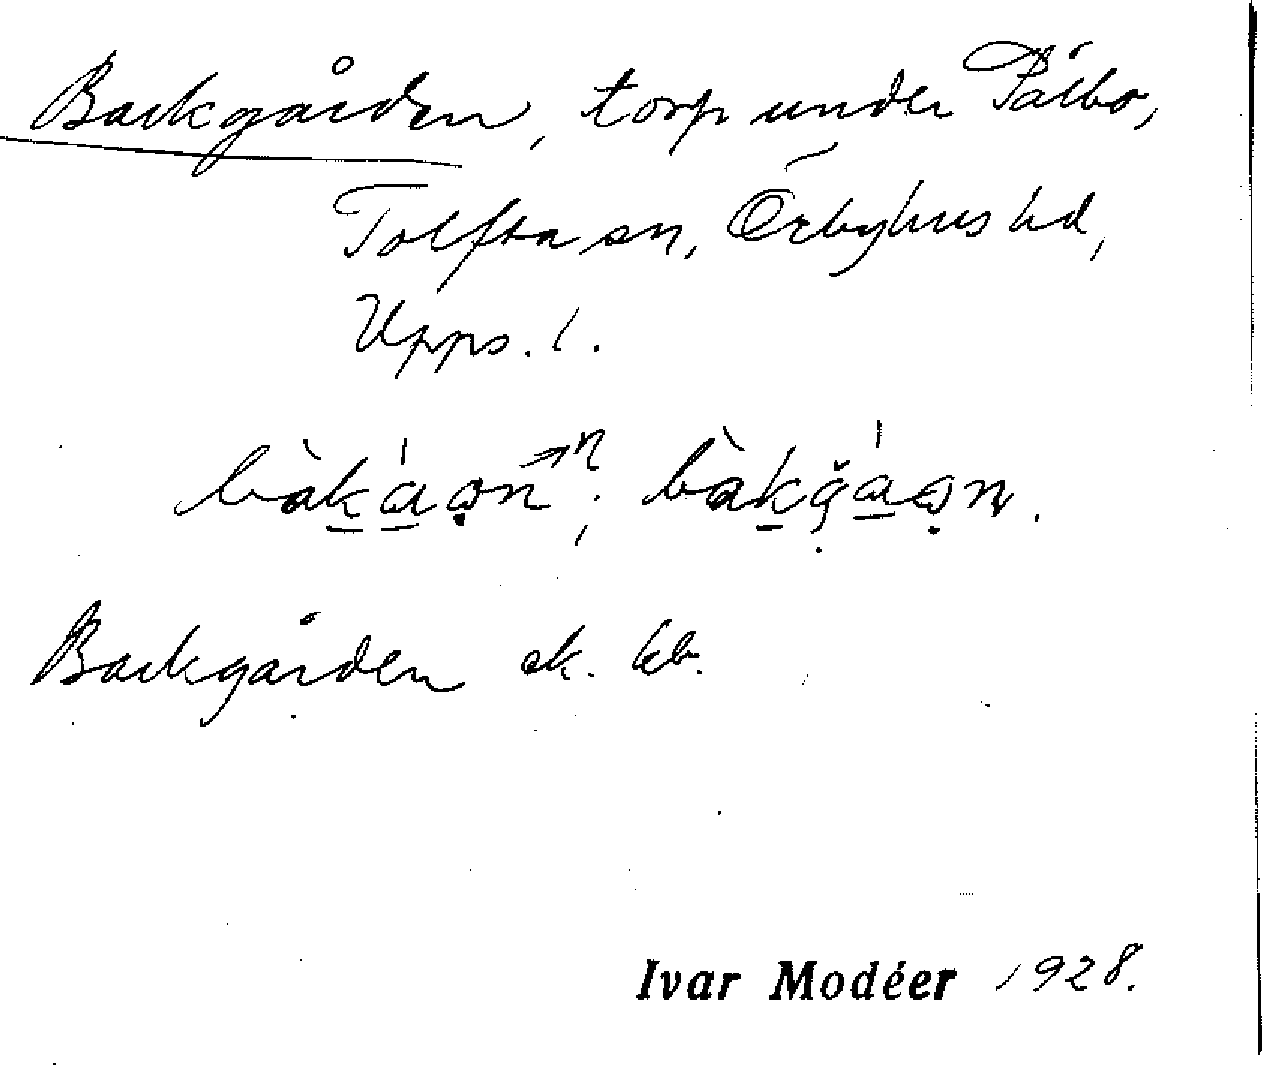 Backgården, torp under Pålbo,
Tolfta sn, Örbyhus hd,
Upps. l.
Backgården ek. kb.
Ivar Modéer 1928.